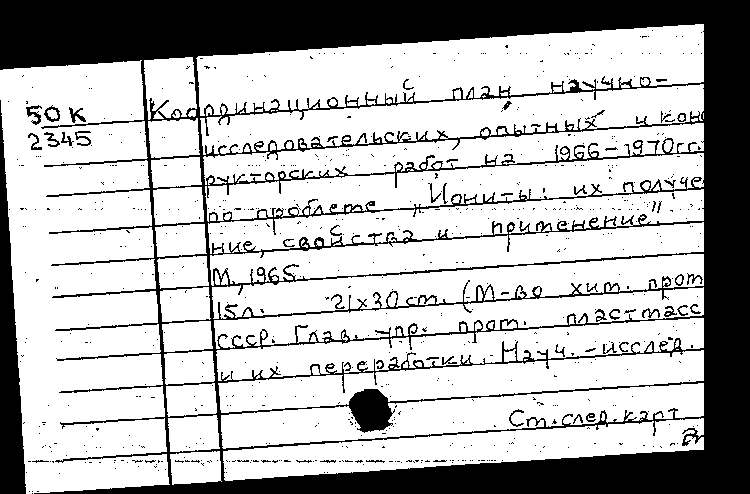 50К
2345
Координационный план научно-
исследовательских, опытных и кон
рукторских работ на 1966-1970гг.
по проблеме „Иониты: их получе
ние, свойства и применение".
М., 1965.
15л. 21×30см. (М-во хим. пром
СССР. Глав. упр. пром. пластмасс
и их переработки. Науч.-исслед.
См. след. карт